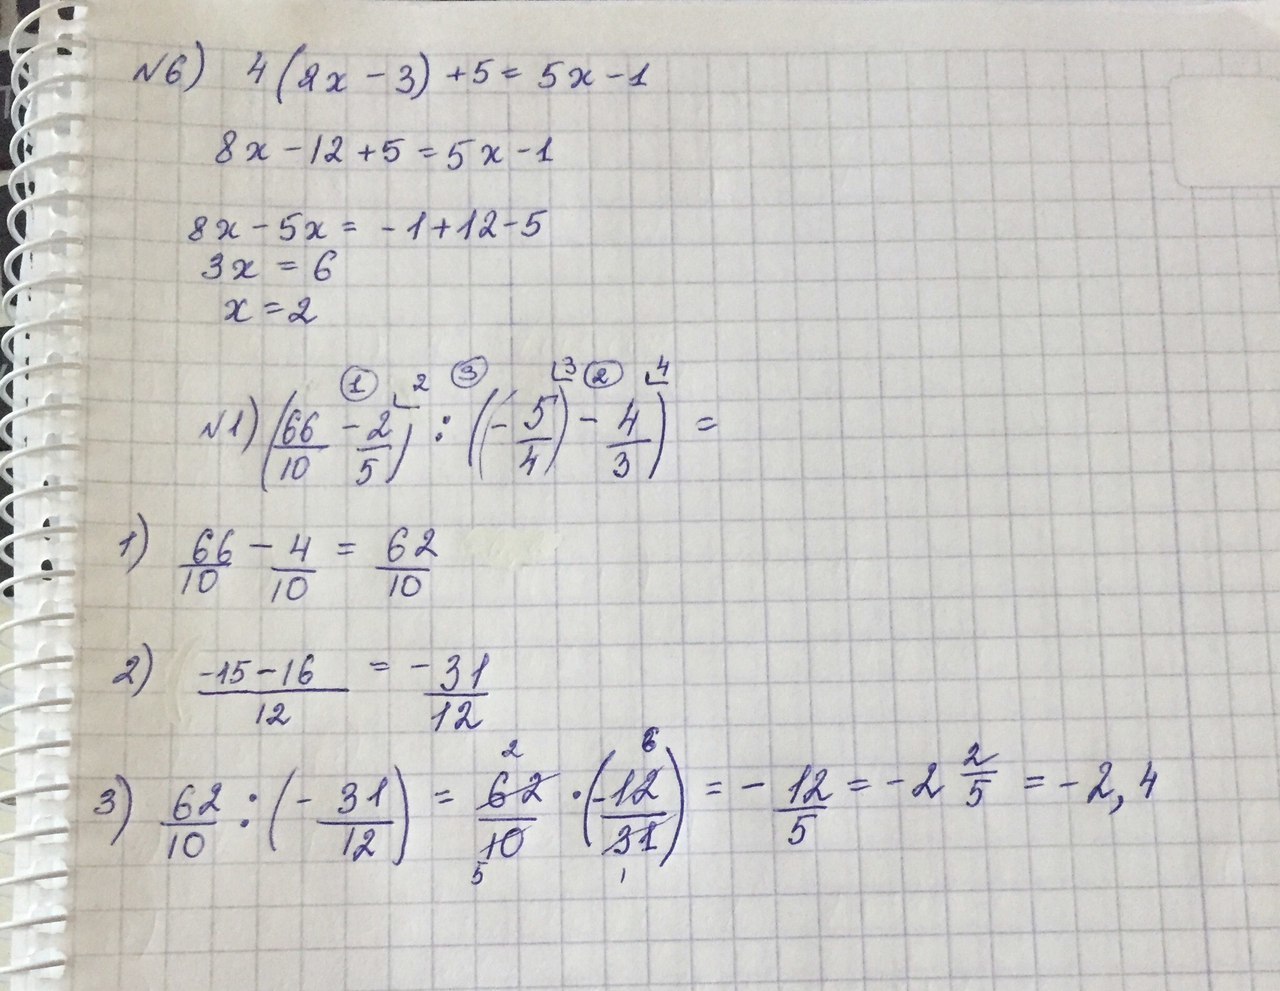 №6) 4(2x - 3) + 5 = 5x - 1
8x - 12 + 5 = 5x - 1
8x - 5x = -1 + 12 - 5
3x = 6
x = 2
① 2 ③ 3 ② 4
№1) (66/10 - 2/5) : ((-5/4) - 4/3) =
1) 66/10 - 4/10 = 62/10
2) (-15 - 16)/12 = -31/12
2 6
3) 62/10 : (-31/12) = 62/10 · (-12/31) = -12/5 = -2 2/5 = -2,4
5 1